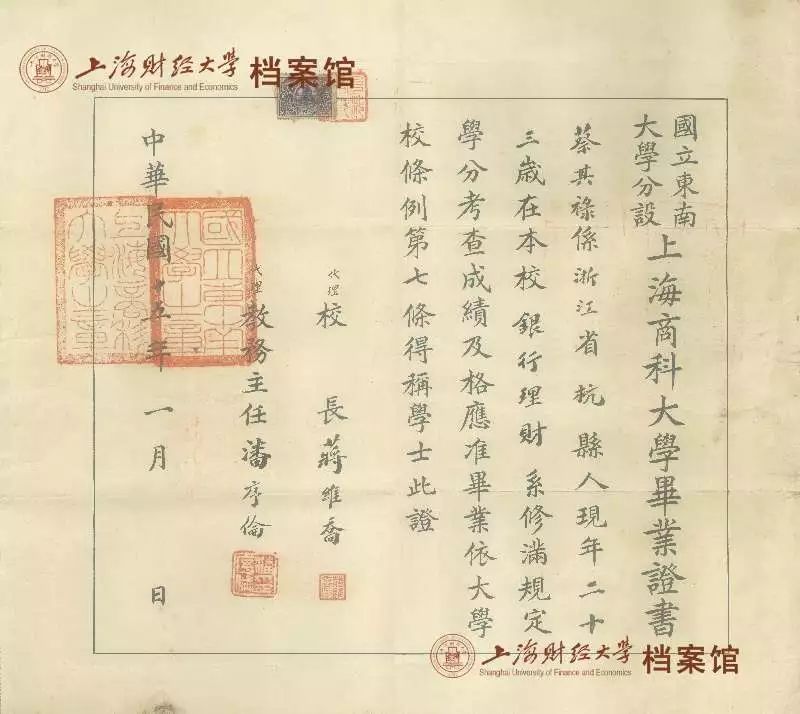 上海财经大学 档案馆
Shanghai University of Finance and Economics
國立東南
大學分設
上海商科大學畢業證書
蔡其祿係浙江省杭縣人現年二十
三歲在本校銀行理財系修滿規定
學分考查成績及格應准畢業依大學
校條例第七條得稱學士此證
代理校 長蔣維喬
代理教務主任潘序倫
中華民國十五年一月 日
上海财经大学 档案馆
Shanghai University of Finance and Economics